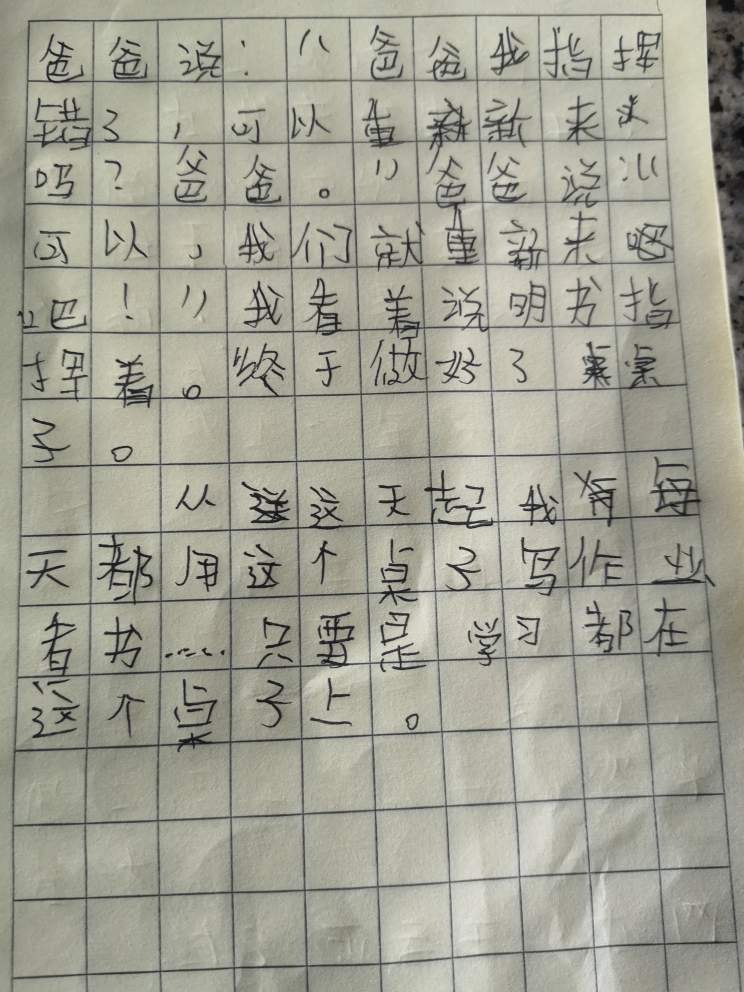 爸爸说：“爸爸我指挥
错了，可以重新来
吗？爸爸。”爸爸说：“
可以，我们就重新来
吧！”我看着说明书指
挥着。终于做好了桌
子。
从这天起我每
天都用这个桌子写作业
看书……只要是学习都在
这个桌子上。